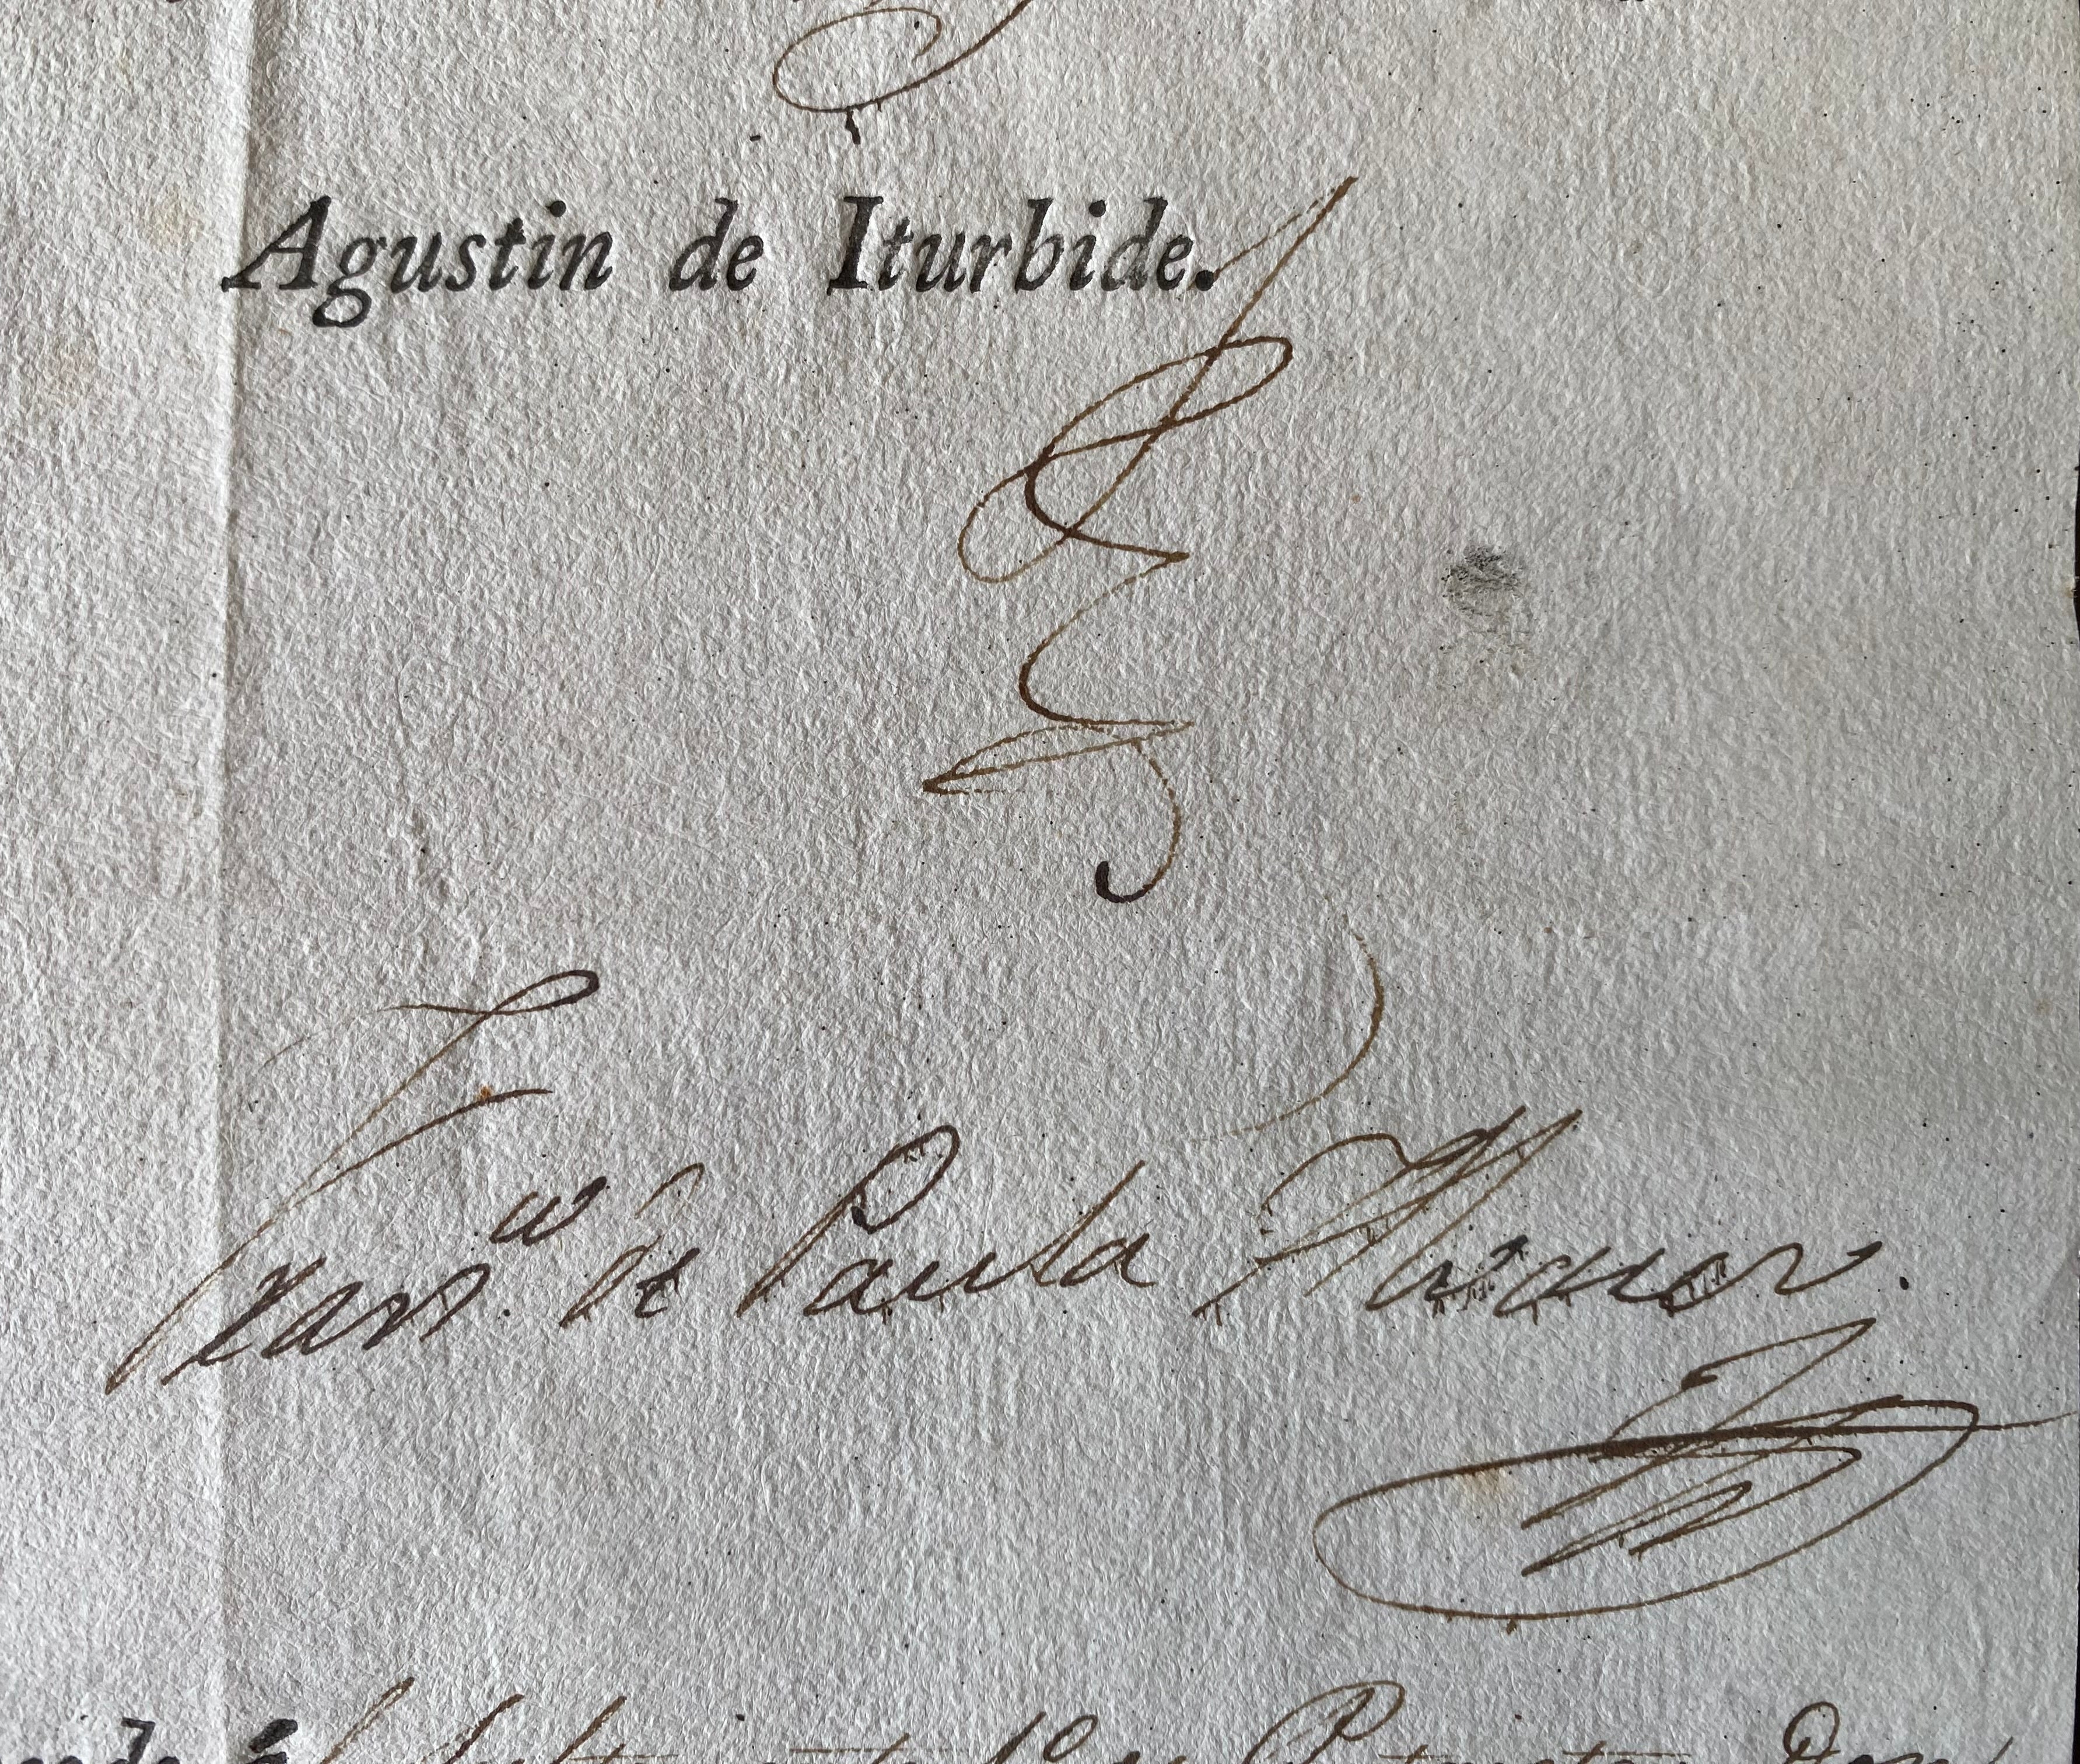 Agustin de Iturbide.
Fran.co de Paula Alvarez.